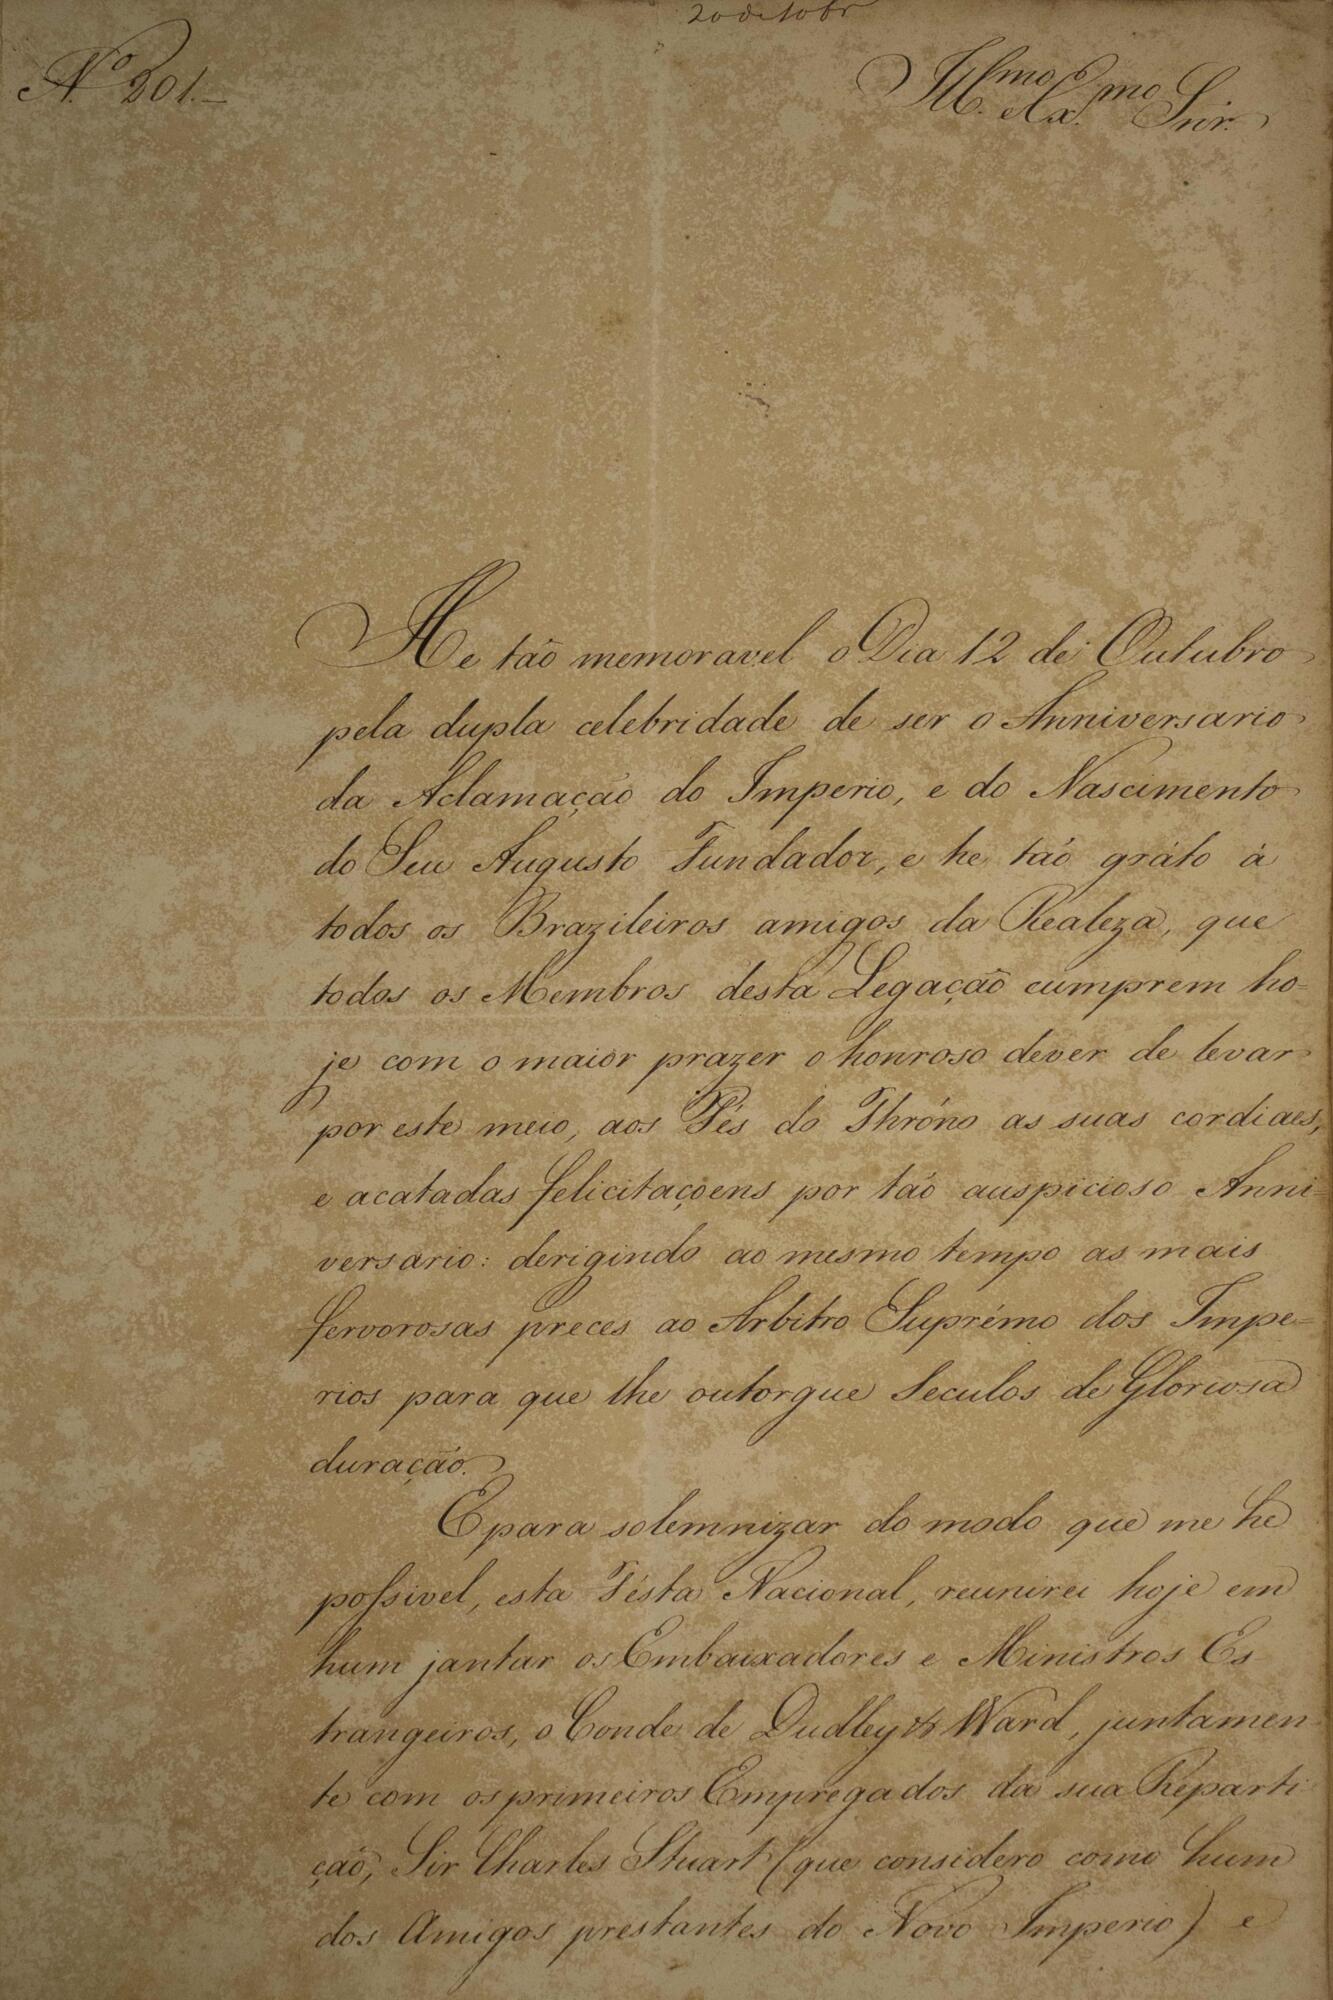 N.º 201.—
Ill.mo Ex.mo Snr.
He tão memoravel o Dia 12 de Outubro
pela dupla celebridade de ser o Anniversario
da Aclamação do Imperio, e do Nascimento
do Seu Augusto Fundador, e he tão gráto à
todos os Brazileiros amigos da Realeza, que
todos os Membros desta Legação cumprem ho=
je com o maior prazer o honroso dever de levar
por este meio, aos Pés do Thróno as suas cordiaes,
e acatadas felicitaçoens por tão auspicioso Anni=
versario: derigindo ao mesmo tempo as mais
fervorosas preces ao Arbitro Suprémo dos Impe=
rios para que lhe outorgue Seculos de Gloriosa
duração.
E para solemnizar do modo que me he
possivel, esta Fésta Nacional, reunirei hoje em
hum jantar os Embaixadores e Ministros Es
trangeiros, o Conde de Dudley & Ward, juntamen
te com os primeiros Empregados da sua Reparti
ção, Sir Charles Stuart (que considero como hum
dos Amigos prestantes do Novo Imperio) e